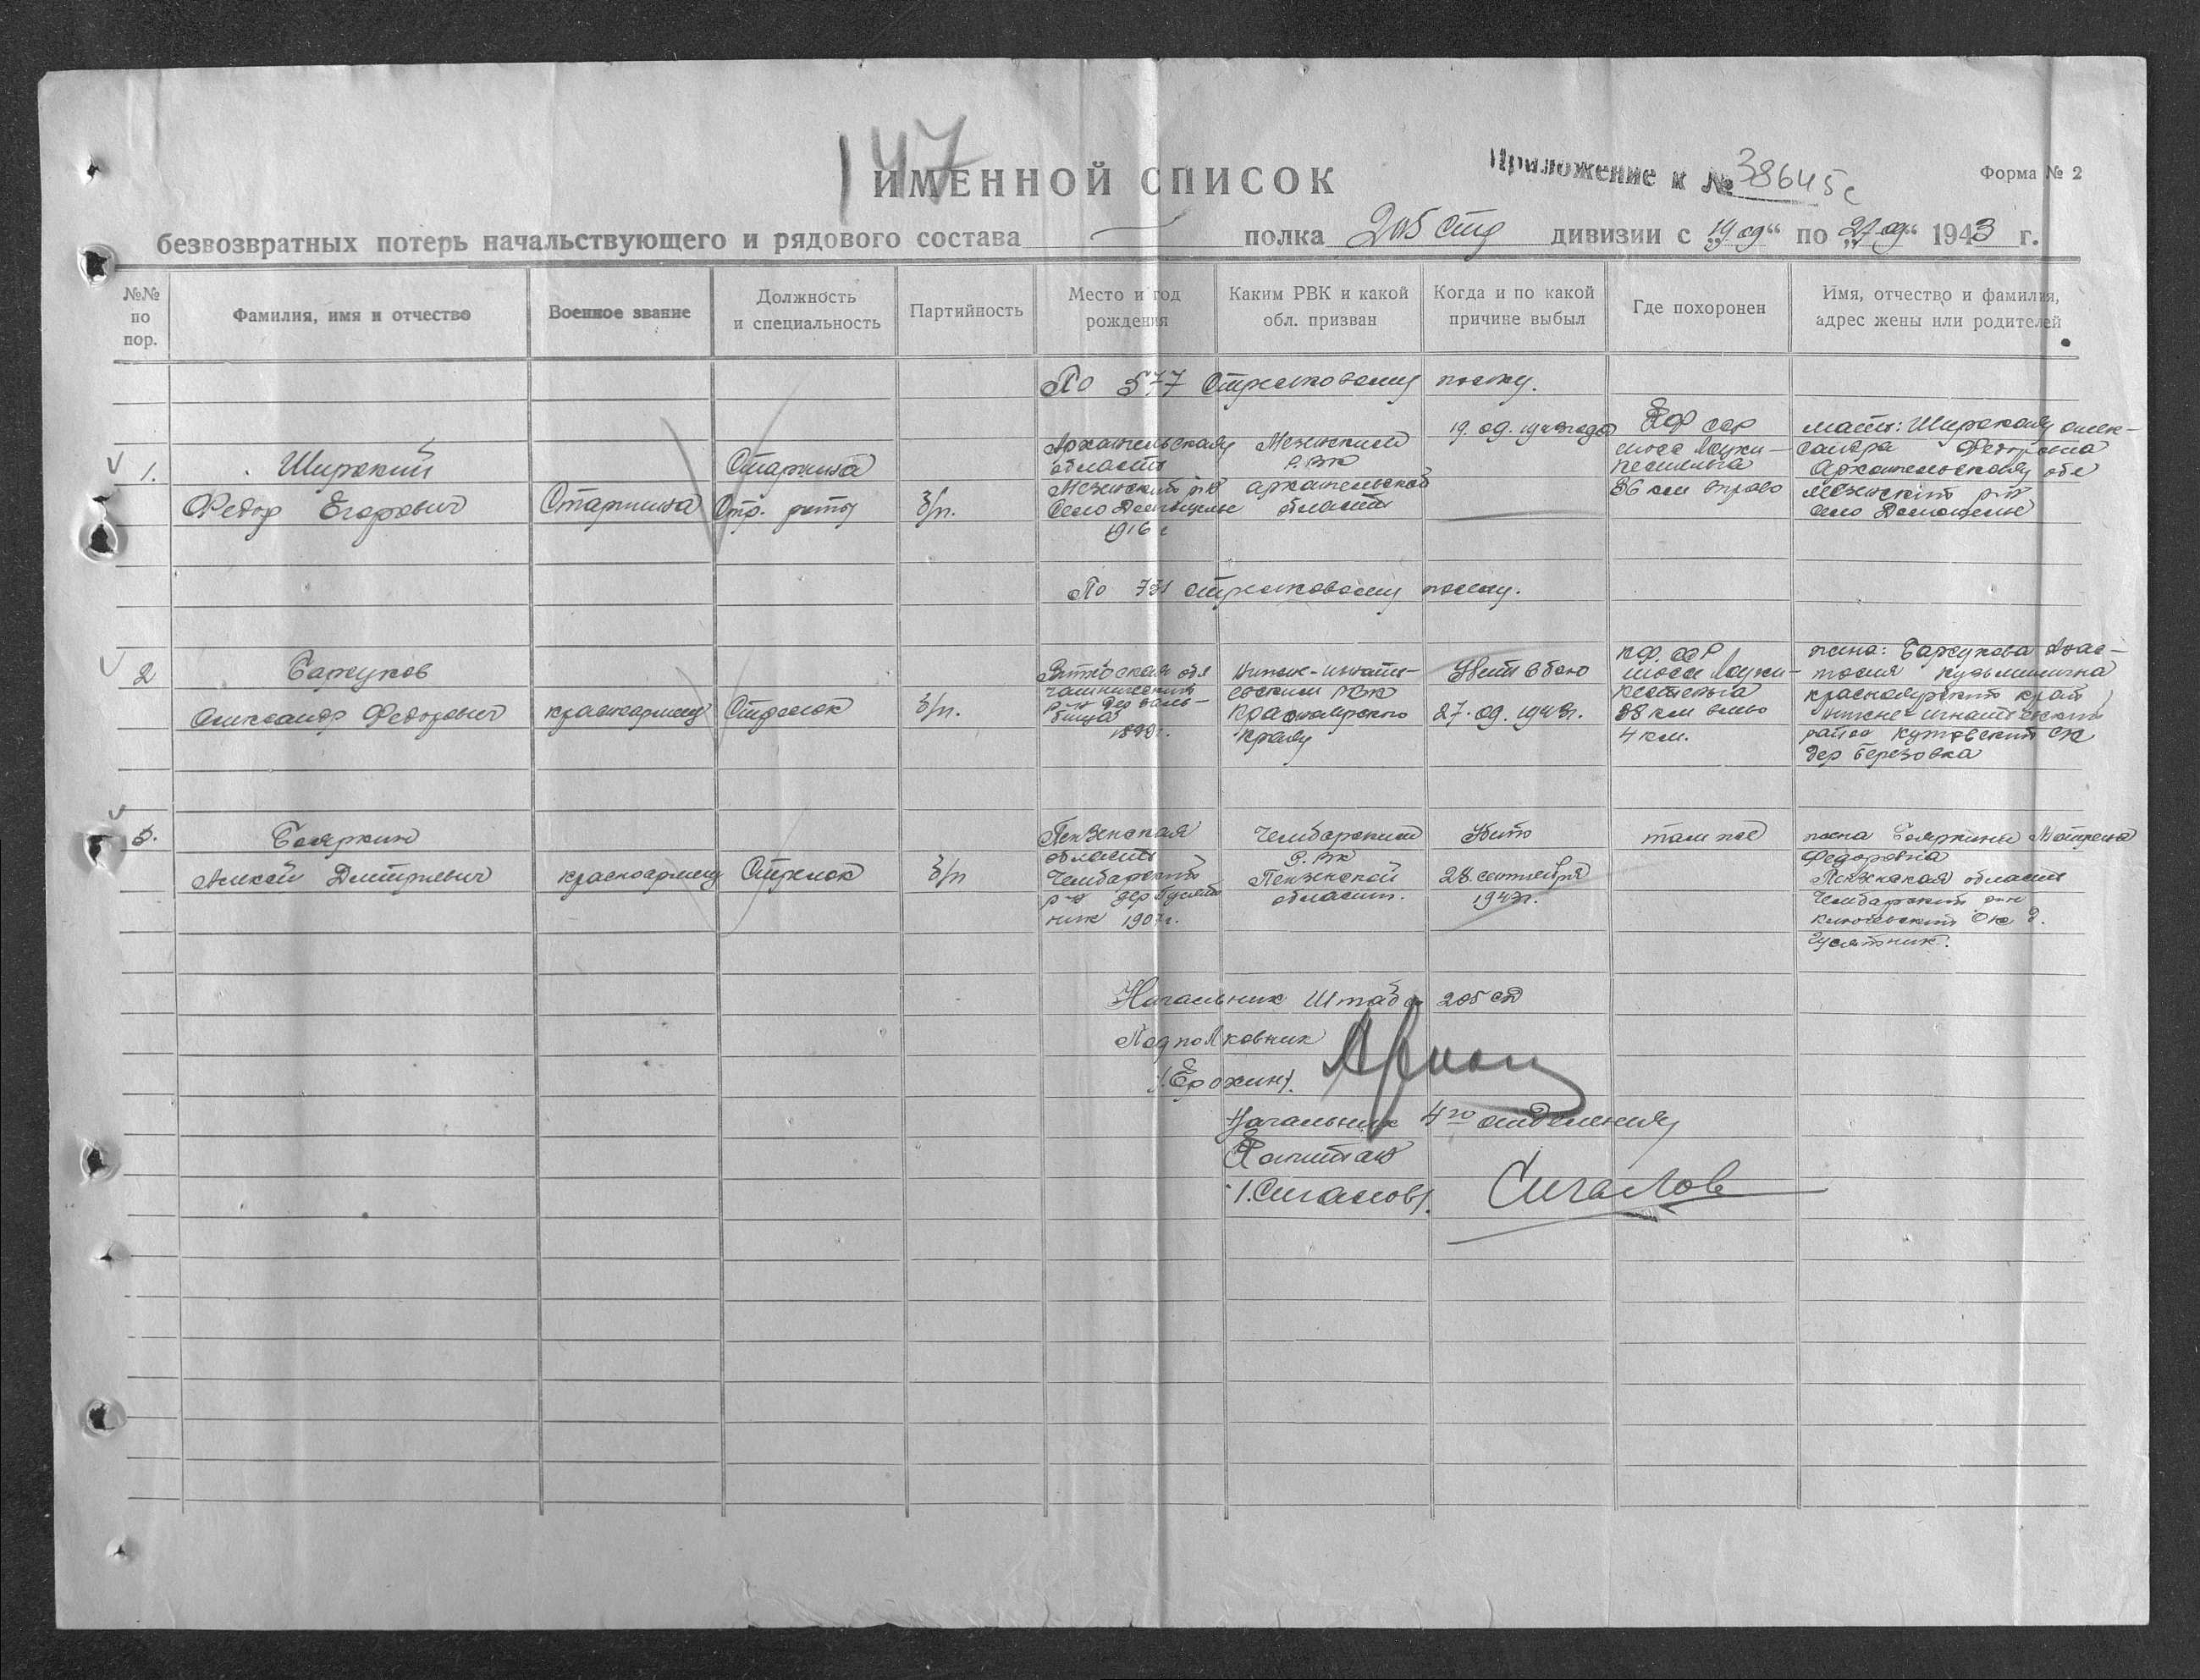 147
ИМЕННОЙ СПИСОК
Приложение к № 38645с
Форма № 2
безвозвратных потерь начальствующего и рядового состава — полка 205 стр дивизии с „19.09“ по „27.09“ 1943 г.
№№ по пор.
Фамилия, имя и отчество
Военное звание
Должность и специальность
Партийность
Место и год рождения
Каким РВК и какой обл. призван
Когда и по какой причине выбыл
Где похоронен
Имя, отчество и фамилия, адрес жены или родителей
По 577 Стрелковому полку.
1.
Ширский
Федор Егорович
Старшина
Старшина
Стр. роты
б/п.
Архангельская
область
Мезенский р-н
Село
1916 г
Мезенским
Р.ВК
Архангельской
области
19.09.1943 года
КФ ССР
шоссе Лоухи-
Кестеньга
36 км вправо
мать: Ширская Алек-
сандра Федоровна
Архангельская обл
Мезенский р-н
Село
По 731 стрелковому полку.
2
Баржуков
Александр Федорович
красноармеец
Стрелок
б/п.
1899г.
Нижне-Ингаш-
ским РВК
Красноярского
края
Убит в бою
27.09.1943г.
КФ.ССР
шоссе Лоухи-
Кестеньга
38 км влево
4 км.
жена: Баржукова Анас-
тасия Кузьминична
Красноярский край
Нижне-Ингашский
район Кучеровский с/с
дер Березовка
3.
Бояркин
Алексей Дмитриевич
красноармеец
Стрелок
б/п
Пензенская
область
Чембарский
р-н дер Гусят-
ник 1907г.
Чембарским
Р.ВК
Пензенской
области.
Убит
28 сентября
1943г.
там же
жена Бояркина Матрена
Федоровна
Пензенская область
Чембарский р-н
Ключевский с/с д.
Гусятник.
Начальник Штаба 205 сд
Подполковник
/.Ерохин/.
Начальник 4го отделения
Капитан
/.Сигалов/. Сигалов